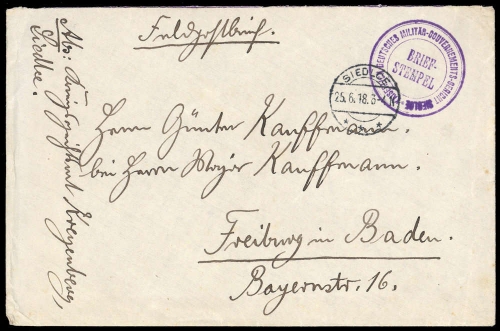 Feldpostbrief.
KAISERL. DEUTSCHES MILITÄR-GOUVERNEMENTS-GERICHT
SIEDLCE
BRIEF-
STEMPEL
SIEDLCE
25.6.18.3-4N
* * *
Herrn Günter Kauffmann.
bei Herrn Major Kauffmann.
Freiburg in Baden.
Bayernstr. 16.
Abs: Kriegsgerichtsrat Kreyenberg,
Siedlce.